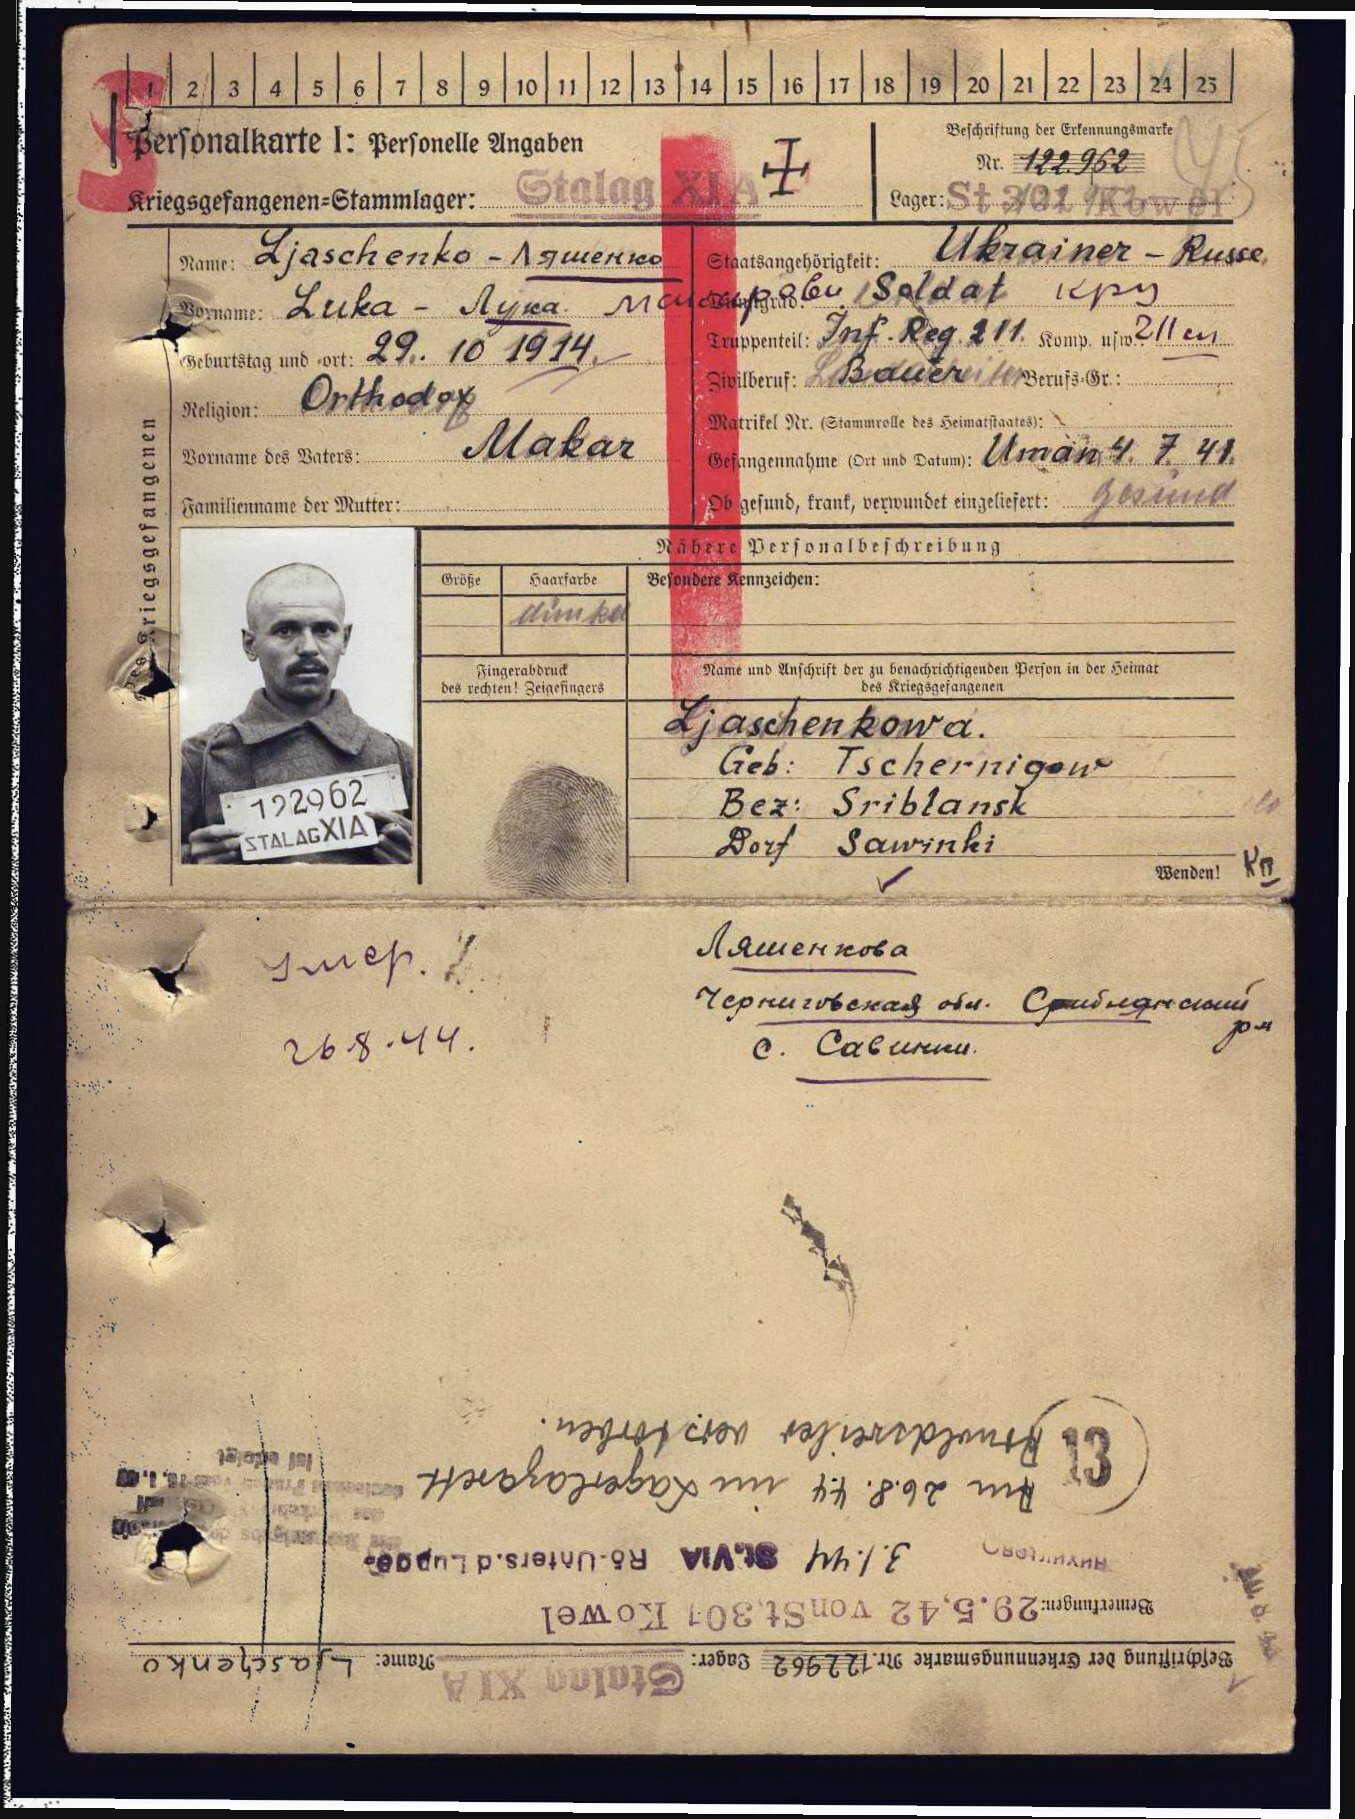 1 2 3 4 5 6 7 8 9 10 11 12 13 14 15 16 17 18 19 20 21 22 23 24 25
Personalkarte I: Personelle Angaben
Beschriftung der Erkennungsmarke
Nr. 122962
Kriegsgefangenen-Stammlager: Stalag XI A
Lager: St 301 Kowel
des Kriegsgefangenen
Name: Ljaschenko - Ляшенко
Vorname: Luka - Лука
Geburtstag und -ort: 29. 10 1914.
Religion: Orthodox
Vorname des Vaters: Makar
Familienname der Mutter:
Staatsangehörigkeit: Ukrainer - Russe
Dienstgrad: Soldat
Truppenteil: Inf. Reg. 211. Komp. usw.: 211 сп
Zivilberuf: Bauer Berufs-Gr.:
Matrikel Nr. (Stammrolle des Heimatstaates):
Gefangennahme (Ort und Datum): Uman 4. 7. 41.
Ob gesund, krank, verwundet eingeliefert: gesund
Nähere Personalbeschreibung
Größe Haarfarbe Besondere Kennzeichen:
dunkel
Fingerabdruck
des rechten! Zeigefingers
Name und Anschrift der zu benachrichtigenden Person in der Heimat
des Kriegsgefangenen
122962
STALAG XI A
Ljaschenkowa.
Geb: Tschernigow
Bez: Sriblansk
Dorf Sawinki
Wenden!
Ляшенкова
Черниговская обл. Сриблянский
р-н
с. Савинки.
умер.
26.8.44.
Beschriftung der Erkennungsmarke Nr. 122962 Lager: Stalag XI A Name: Ljaschenko
Bemerkungen: 29.5.42 von St. 301 Kowel
3.1.44 St. VIA Rö.-Unters. d. Lunge
Am 26.8.44 im Lagerlazarett
verstorben.
13